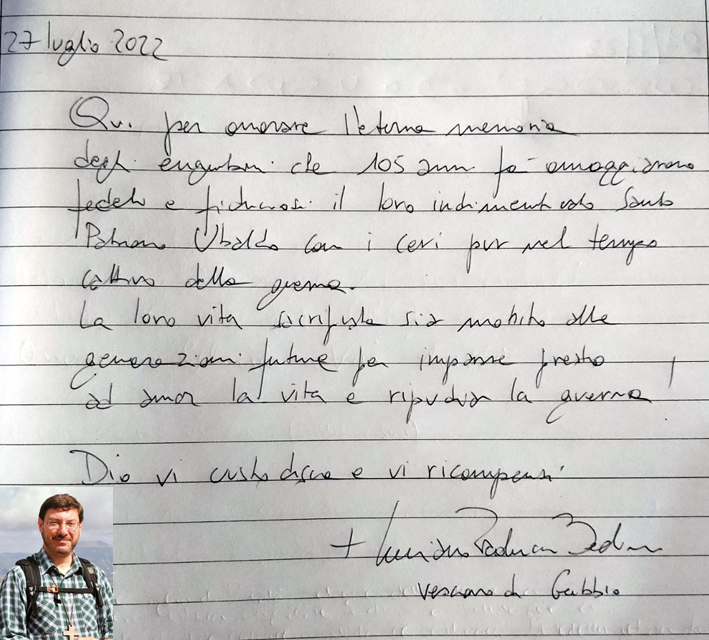 27 luglio 2022
Qui per onorare l'eterna memoria
degli eugubini che 105 anni fa omaggiarono
fedeli e fiduciosi il loro indimenticato Santo
Patrono Ubaldo con i ceri pur nel tempo
cattivo della guerra.
La loro vita sacrificata sia monito alle
generazioni future per imparare presto
ad amar la vita e ripudiar la guerra!
Dio vi custodisca e vi ricompensi
+ Luciano Paolucci Bedini
Vescovo di Gubbio